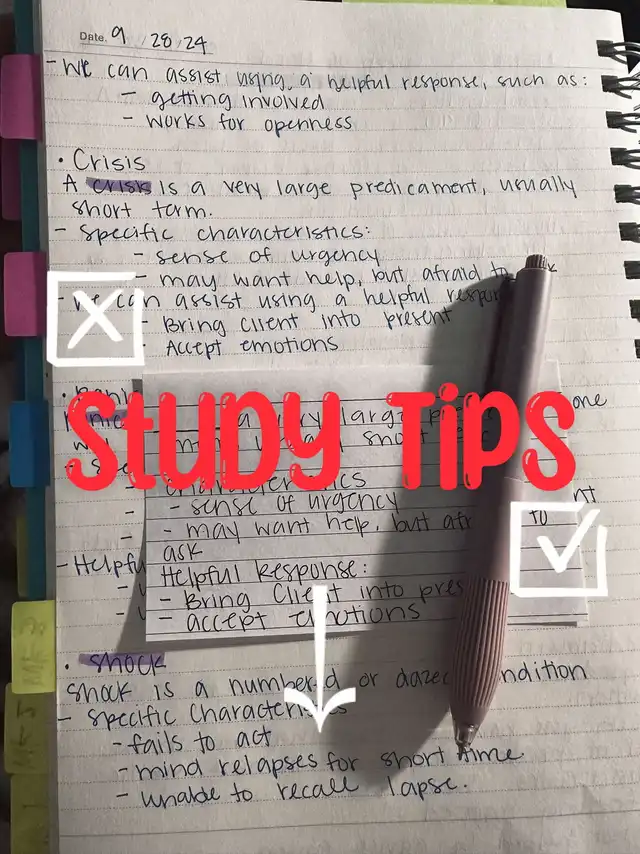 Date. 9 / 28 / 24
- We can assist using a helpful response, such as:
- getting involved
- works for openness
• Crisis
A crisis is a very large predicament, usually
short term.
- Specific characteristics:
- sense of urgency
- may want help, but afraid to
- We can assist using a helpful
- Bring Client into present
- Accept emotions
Study Tips
very large
one
characteristics
- sense of urgency
- may want help, but
to
ask
- Helpful
Helpful Response:
- Bring Client into
- accept emotions
• Shock
Shock is a numbered or
- Specific
- fails to act
- mind relapses for short time
- unable to recall lapse.